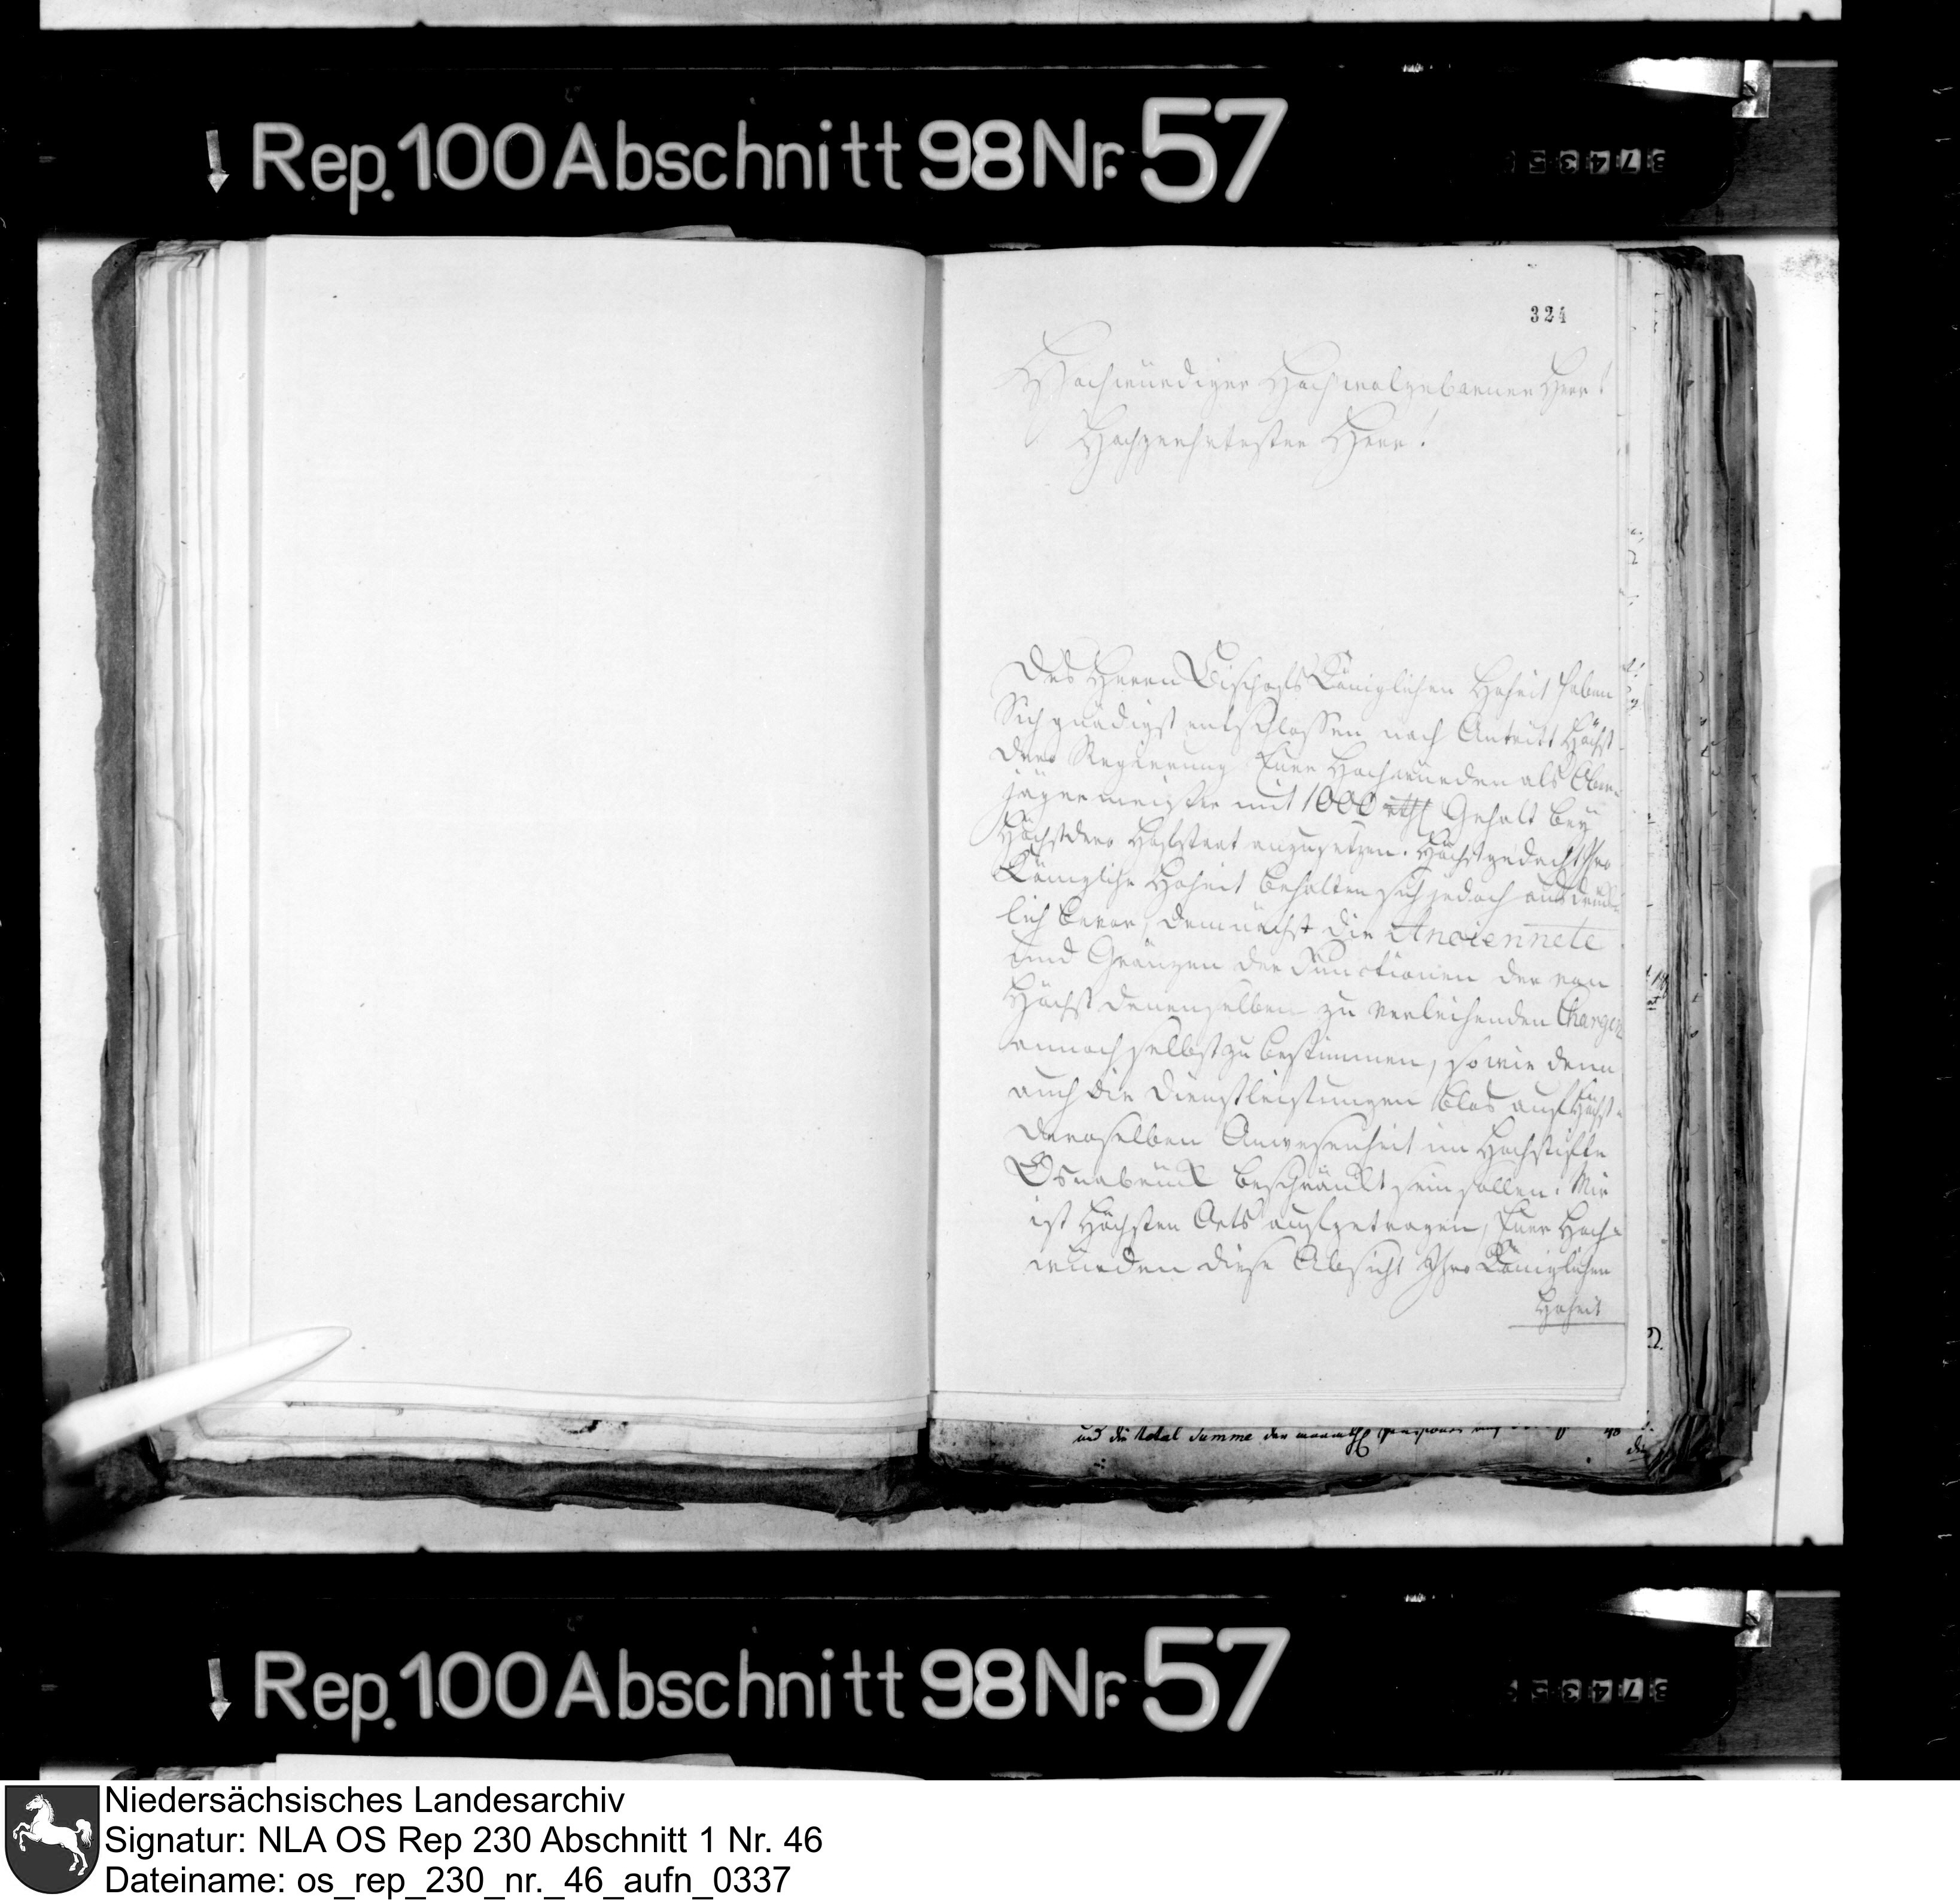 Rep. 100 Abschnitt 98 Nr. 57
324
Hochwürdiger Hochwolgebohrner Herr!
Hochgeehrtester Herr!
Des Herrn Bischofs Königlichen Hoheit haben
Sich gnädigst entschlossen nach Antritt Höchst
Dero Regierung Euer Hochwürden als Ober-
jägermeister mit 1000 rthl Gehalt bey
Höchstdero Hofstaat anzusetzen. Höchstgedacht Ihro
Königliche Hoheit behalten sich jedoch ausdrück-
lich bevor, demnächst die Anciennete
und Gränzen der Functionen der von
Höchst denenselben zu verleihenden Chargen
annoch selbst zu bestimmen, so wie denn
auch die Dienstleistungen blos auf Höchst-
Deroselben Anwesenheit im Hochstifte
Osnabrück beschränkt sein sollen. Mir
ist Höchsten Orts aufgetragen, Euer Hoch-
würden diese Absicht Ihro Königlichen
Hoheit
und die total Summe der
Rep. 100 Abschnitt 98 Nr. 57
Niedersächsisches Landesarchiv
Signatur: NLA OS Rep 230 Abschnitt 1 Nr. 46
Dateiname: os_rep_230_nr._46_aufn_0337